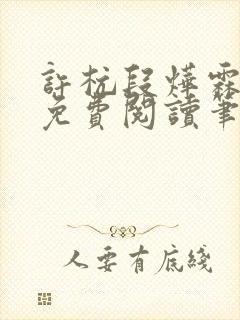 許杭段燁霖
免費閱讀筆
人要有底綫